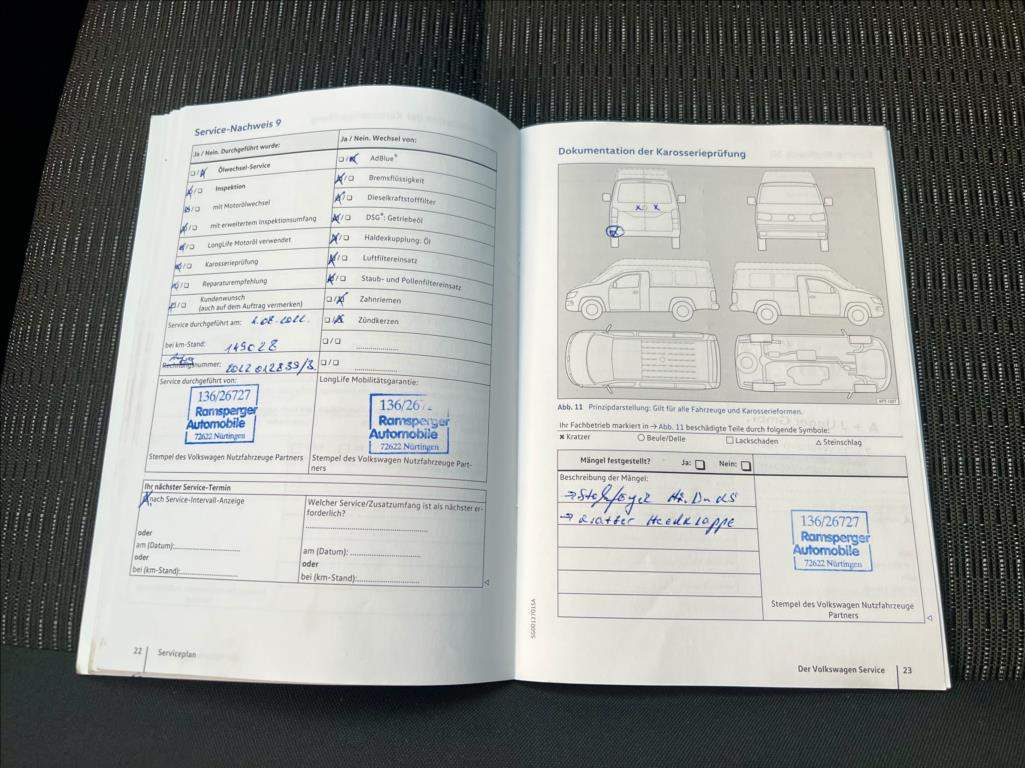 Service-Nachweis 9
Ja / Nein. Durchgeführt wurde:
Ölwechsel-Service
Inspektion
mit Motorölwechsel
mit erweitertem Inspektionsumfang
LongLife Motoröl verwendet
Karosserieprüfung
Reparaturempfehlung
Kundenwunsch
(auch auf dem Auftrag vermerken)
Service durchgeführt am:
bei km-Stand: 149028
Rechnungsnummer:
Service durchgeführt von:
136/26727
Ramsperger
Automobile
72622 Nürtingen
Stempel des Volkswagen Nutzfahrzeuge Partners
Ja / Nein. Wechsel von:
AdBlue®
Bremsflüssigkeit
Dieselkraftstofffilter
DSG®: Getriebeöl
Haldexkupplung: Öl
Luftfiltereinsatz
Staub- und Pollenfiltereinsatz
Zahnriemen
Zündkerzen
LongLife Mobilitätsgarantie:
136/26
Ramsperger
Automobile
72622 Nürtingen
Stempel des Volkswagen Nutzfahrzeuge Part-
ners
Ihr nächster Service-Termin
nach Service-Intervall-Anzeige
oder
am (Datum):
oder
bei (km-Stand):
Welcher Service/Zusatzumfang ist als nächster er-
forderlich?
am (Datum):
oder
bei (km-Stand):
22 Serviceplan
Dokumentation der Karosserieprüfung
Abb. 11 Prinzipdarstellung: Gilt für alle Fahrzeuge und Karosserieformen.
Ihr Fachbetrieb markiert in → Abb. 11 beschädigte Teile durch folgende Symbole:
Kratzer Beule/Delle Lackschaden Steinschlag
Mängel festgestellt? Ja: Nein:
Beschreibung der Mängel:
136/26727
Ramsperger
Automobile
72622 Nürtingen
Stempel des Volkswagen Nutzfahrzeuge
Partners
Der Volkswagen Service 23